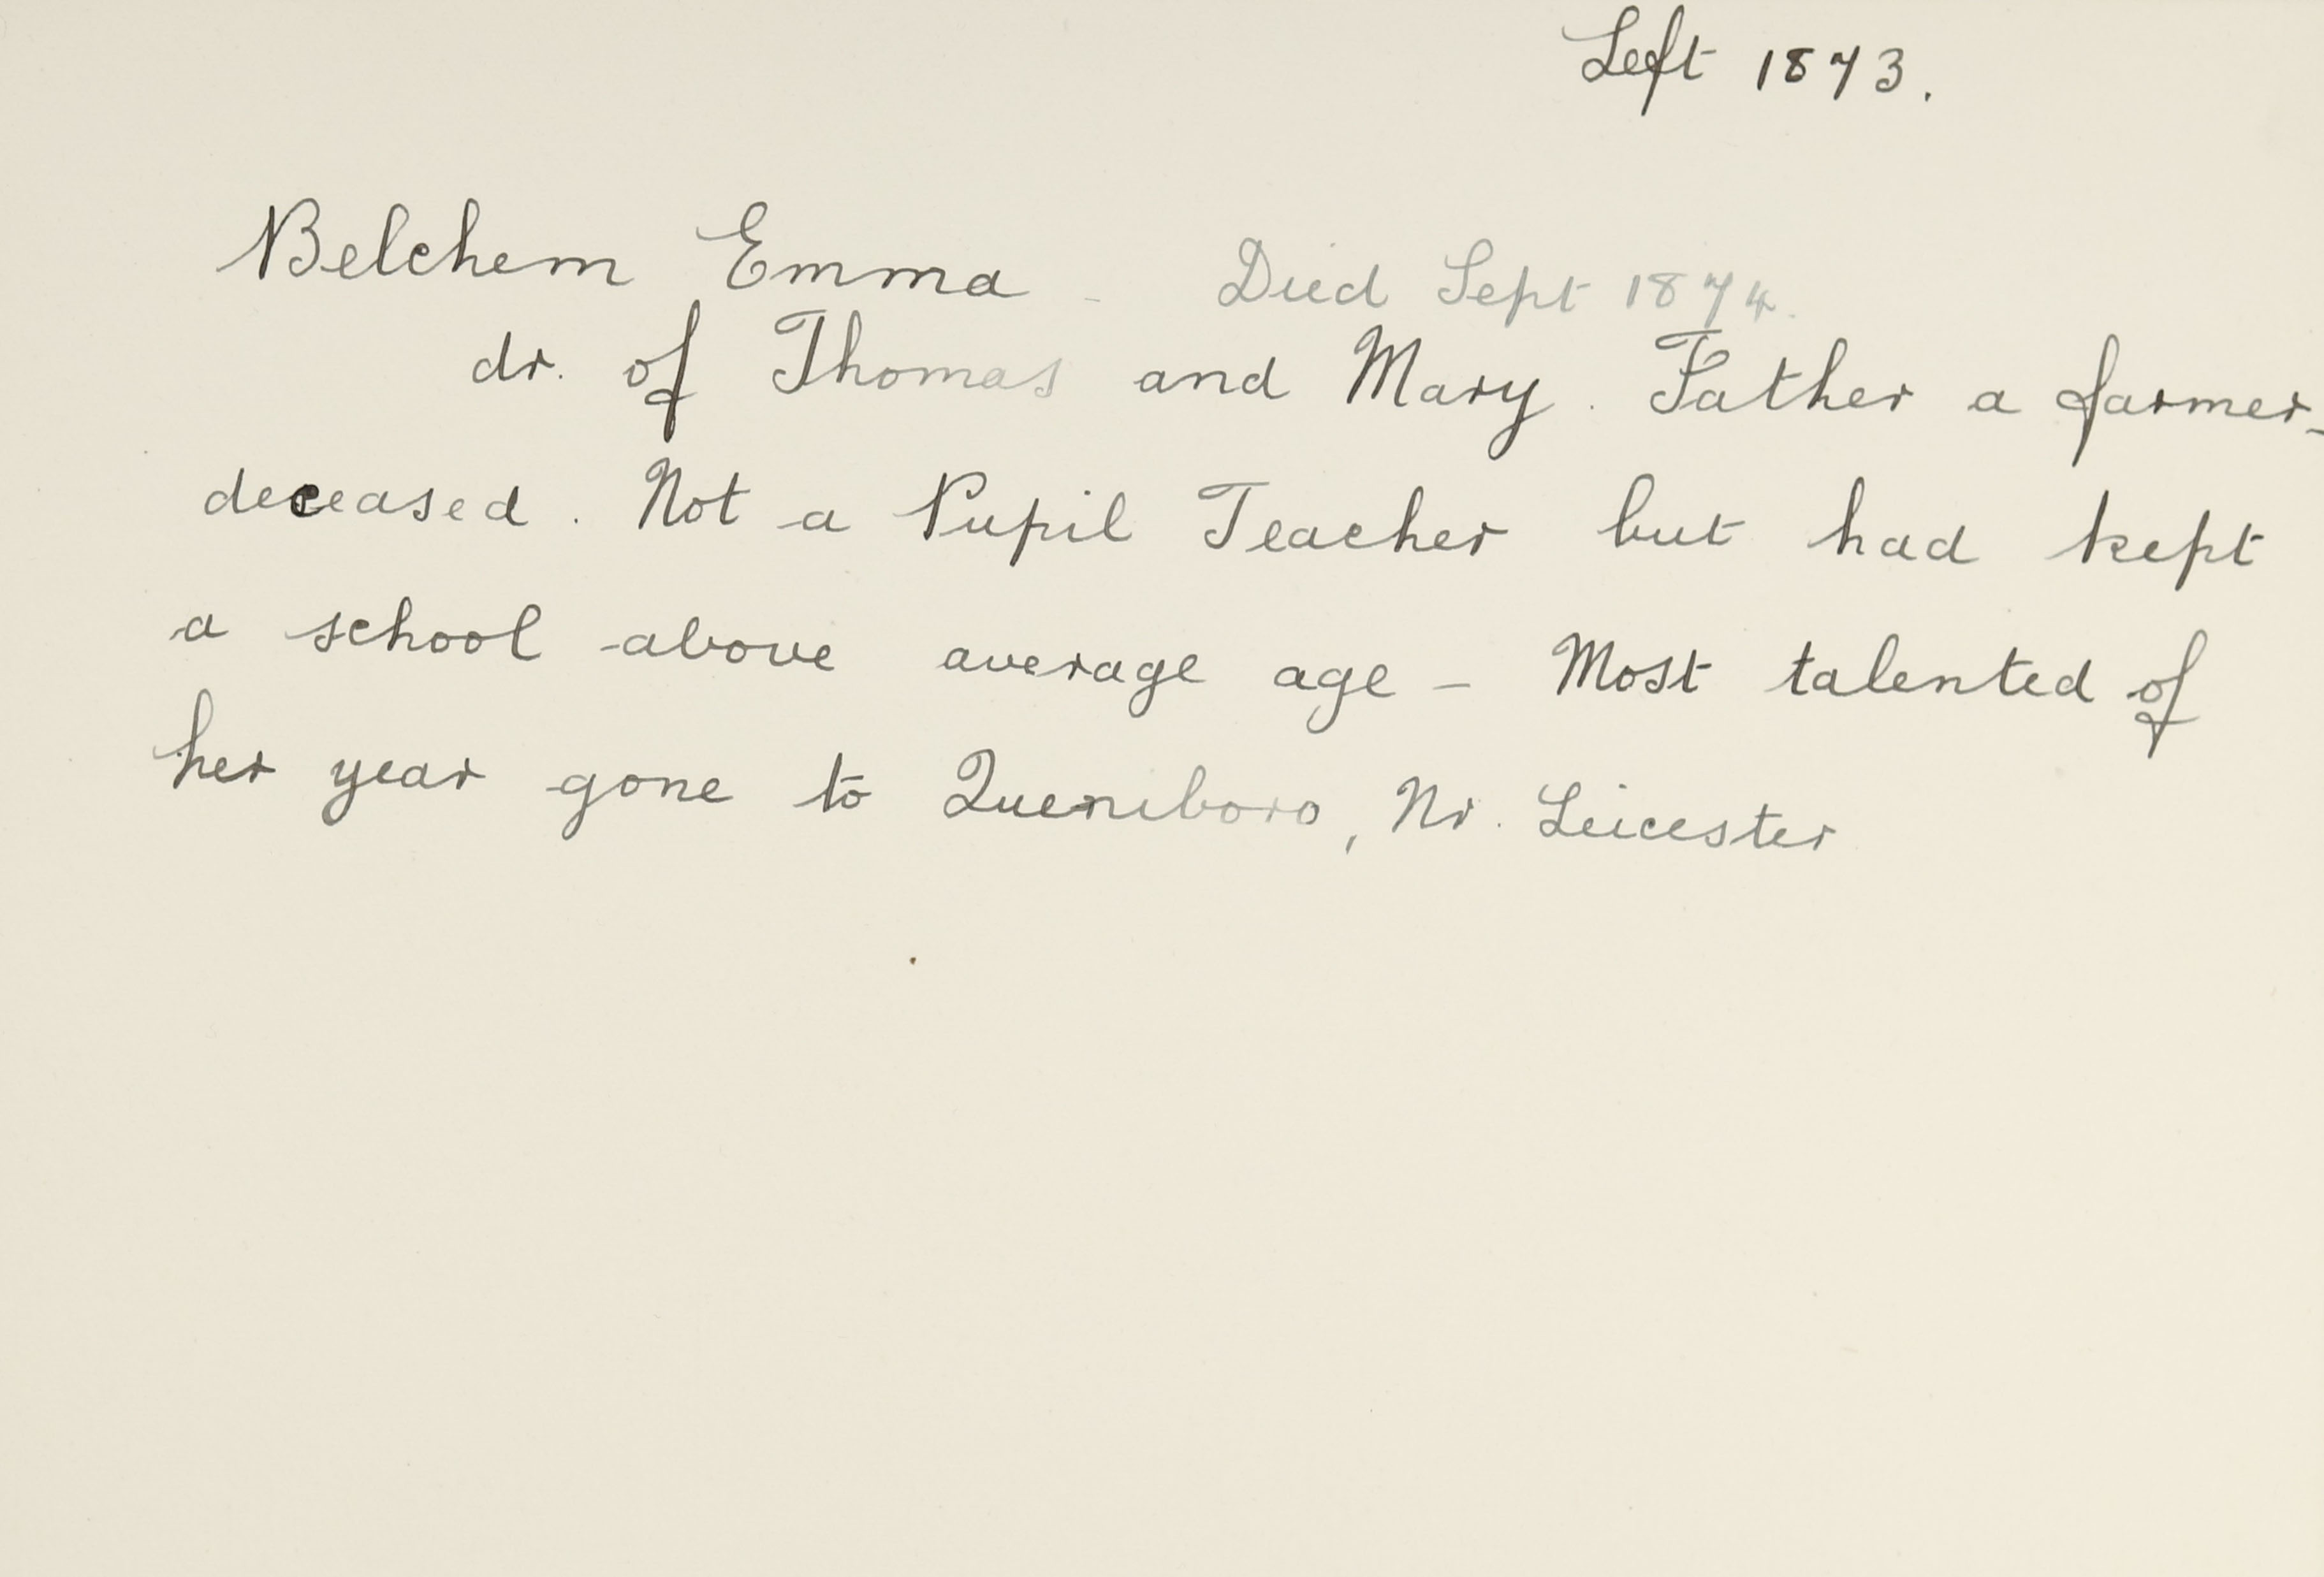 Left 1873.
Belchem Emma - Died Sept 1874.
dr. of Thomas and Mary. Father a farmer -
deceased. Not a Pupil Teacher but had kept
a school above average age - Most talented of
her year gone to Queniboro, Nr. Leicester